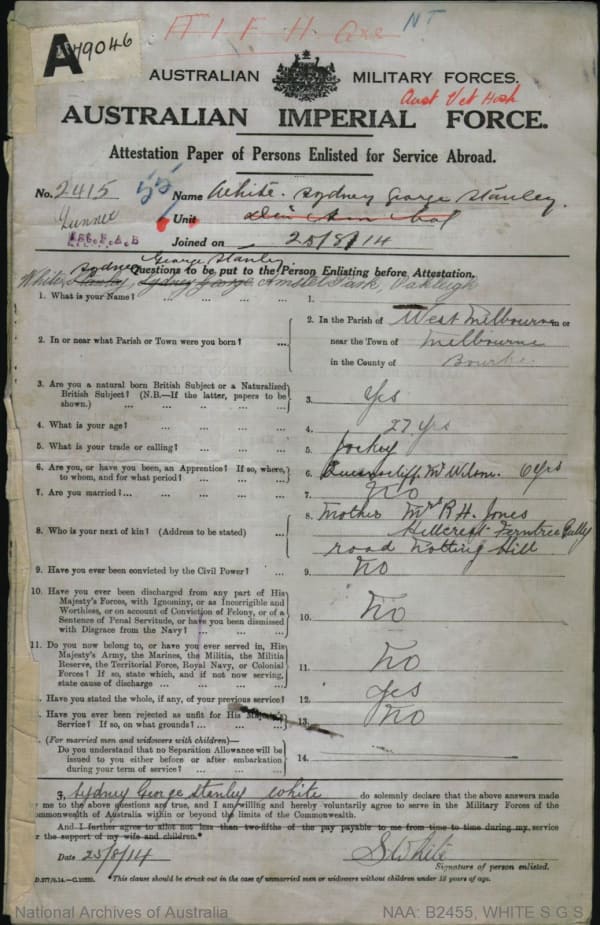 A 49046
A I F H. NT
AUSTRALIAN MILITARY FORCES.
Aust Vet Hosp
AUSTRALIAN IMPERIAL FORCE.
Attestation Paper of Persons Enlisted for Service Abroad.
No. 2415 Name White. Sydney George Stanley.
Unit
Joined on 25/8/14
Sydney George Stanley
Questions to be put to the Person Enlisting before Attestation.
White, Stanley, Sydney George Amstel Park, Oakleigh
1. What is your Name? ... ... ... ... 1.
2. In or near what Parish or Town were you born? ... 2. In the Parish of West Melbourne in or
near the Town of Melbourne
in the County of Bourke
3. Are you a natural born British Subject or a Naturalized
British Subject? (N.B.—If the latter, papers to be
shown.) ... ... ... ... 3. Yes
4. What is your age? ... ... ... ... 4. 27 yrs
5. What is your trade or calling? ... ... ... 5. Jockey
6. Are you, or have you been, an Apprentice? If so, where,
to whom, and for what period? ... ... ... 6. Queenscliff Mr Wilson. 6 yrs
7. Are you married? ... ... ... ... 7. No
8. Who is your next of kin? (Address to be stated) ... 8. Mother Mrs R H. Jones
Hillcrest Ferntree Gully
road Notting Hill
9. Have you ever been convicted by the Civil Power? ... 9. No
10. Have you ever been discharged from any part of His
Majesty's Forces, with Ignominy, or as Incorrigible and
Worthless, or on account of Conviction of Felony, or of a
Sentence of Penal Servitude, or have you been dismissed
with Disgrace from the Navy? ... ... ... 10. No
11. Do you now belong to, or have you ever served in, His
Majesty's Army, the Marines, the Militia, the Militia
Reserve, the Territorial Force, Royal Navy, or Colonial
Forces? If so, state which, and if not now serving,
state cause of discharge ... ... ... ... 11. No
Have you stated the whole, if any, of your previous service? 12. Yes
Have you ever been rejected as unfit for His Majesty's
Service? If so, on what grounds? ... ... ... 13. No
(For married men and widowers with children)—
Do you understand that no Separation Allowance will be
issued to you either before or after embarkation
during your term of service? ... ... ... 14.
I, Sydney George Stanley White do solemnly declare that the above answers made
me to the above questions are true, and I am willing and hereby voluntarily agree to serve in the Military Forces of the
ommonwealth of Australia within or beyond the limits of the Commonwealth.
And I further agree to allot not less than two-fifths of the pay payable to me from time to time during my service
for the support of my wife and children.*
Date 25/8/14 S White
Signature of person enlisted.
*This clause should be struck out in the case of unmarried men or widowers without children under 18 years of age.
National Archives of Australia NAA: B2455, WHITE S G S